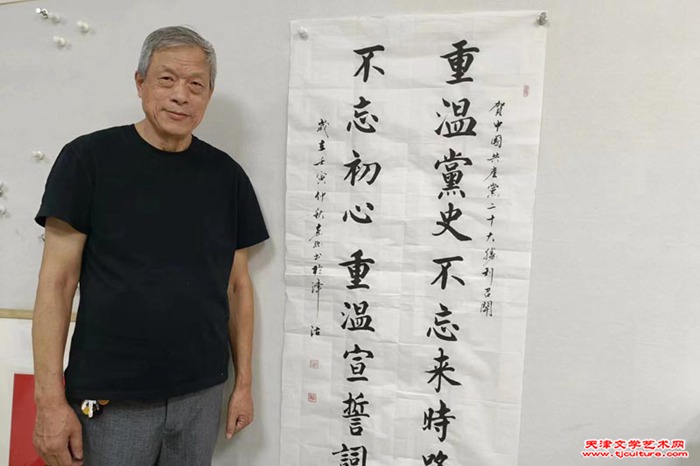 賀中國共產黨二十大勝利召開
重溫黨史不忘来時路
不忘初心重溫宣誓詞
歲在壬寅仲秋 書於津沽
天津文学艺术网
www.tjculture.com